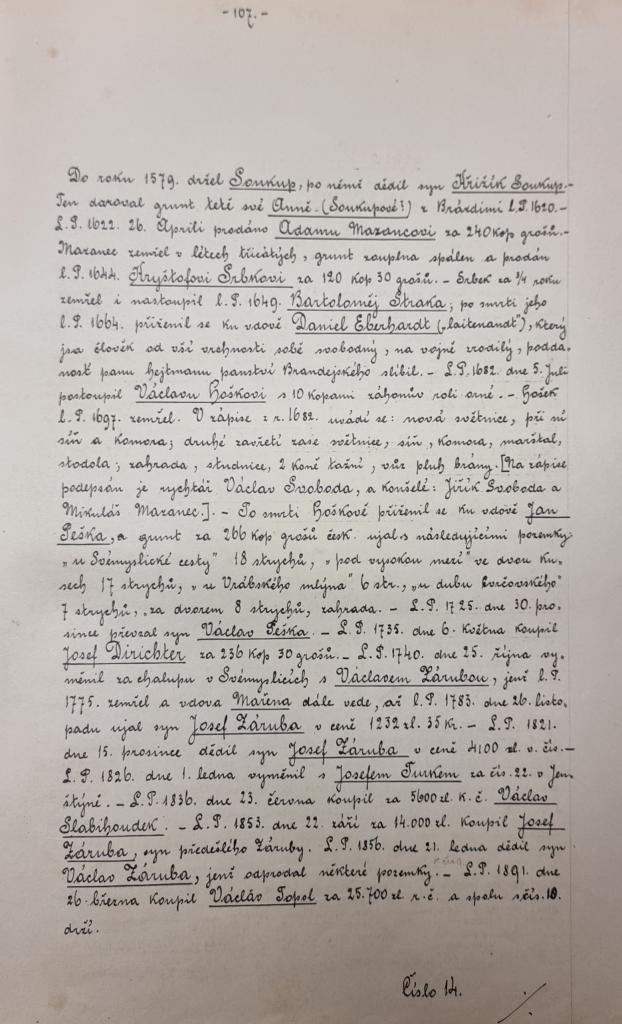 - 107. -
Do roku 1579. držel Soukup, po němě dědil syn Křižík Soukup.-
Ten daroval grunt tetě své Anně (Soukupové?) z Brázdimi l.P. 1620.-
L.P. 1622. 26. Aprili prodáno Adamu Mazancovi za 240 kop grošů.-
Mazanec zemřel v létech třicátých, grunt zouplna spálen a prodán
l.P. 1644. Kryštofovi Srbkovi za 120 kop 30 grošů. - Srbek za ¾ roku
zemřel i nastoupil l.P. 1649. Bartoloměj Straka; po smrti jeho
l.P. 1664. přiženil se ku vdově Daniel Eberhardt („laitenandt"), který
jsa člověk od vší vrchnosti sobě svobodný, na vojně zrodilý, podda-
nost panu hejtmanu panství Brandejského slíbil. - L.P. 1682. dne 5. Juli
postoupil Václavu Hoškovi s 10 kopami záhonův rolí orné. - Hošek
l.P. 1697. zemřel. V zápise z r. 1682. uvádí se: nová světnice, při ní
síň a komora; druhé zavřetí zase světnice, síň, komora, marštal,
stodola; zahrada, studnice, 2 koně tažní, vůz pluh brány. [Na zápise
podepsán je rychtář Václav Svoboda, a konšelé: Jiřík Svoboda a
Mikuláš Mazanec.]. - Po smrti Hoškově přiženil se ku vdově Jan
Peška, a grunt za 266 kop grošů česk. ujal s následujícími pozemky:
„u Svémyslické cesty" 18 strychů, „pod vysokou mezí" ve dvou ku-
sech 17 strychů, „u Vrábského mlýna" 6 str., „u dubu Cvrčovského"
7 strychů, „za dvorem 8 strychů, zahrada. - L.P. 1725. dne 30. pro-
since převzal syn Václav Peška. - L.P. 1735. dne 6. Května koupil
Josef Dirichter za 236 kop 30 grošů. - L.P. 1740. dne 25. října vy-
měnil za chalupu v Svémyslicích s Václavem Zárubou, jenž l.P.
1775. zemřel a vdova Mařena dále vede, až l.P. 1783. dne 26. listo-
padu ujal syn Josef Záruba v ceně 1232 zl. 35 kr. - L.P. 1821.
dne 15. prosince dědil syn Josef Záruba v ceně 4100 zl. v. čís.-
L.P. 1826. dne 1. ledna vyměnil s Josefem Turkem za čís. 22. v Jen-
štýně. - L.P. 1836. dne 23. června koupil za 5600 zl. k.č. Václav
Slabihoudek. - L.P. 1853. dne 22. září za 14.000 zl. koupil Josef
Záruba, syn předešlého Záruby. L.P. 1856. dne 21. ledna dědil syn
Václav Záruba, jenž odprodal některé pozemky. - L.P. 1891. dne
26. března koupil Václav Topol za 25.700 zl r.č. a spolu s čís. 10.
drží.
Číslo 14.